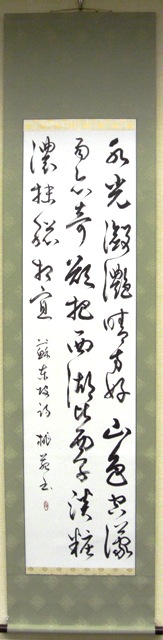 水光瀲灩晴方好山色空濛
雨亦奇欲把西湖比西子淡粧
濃抹總相宜
蘇東坡詩 書